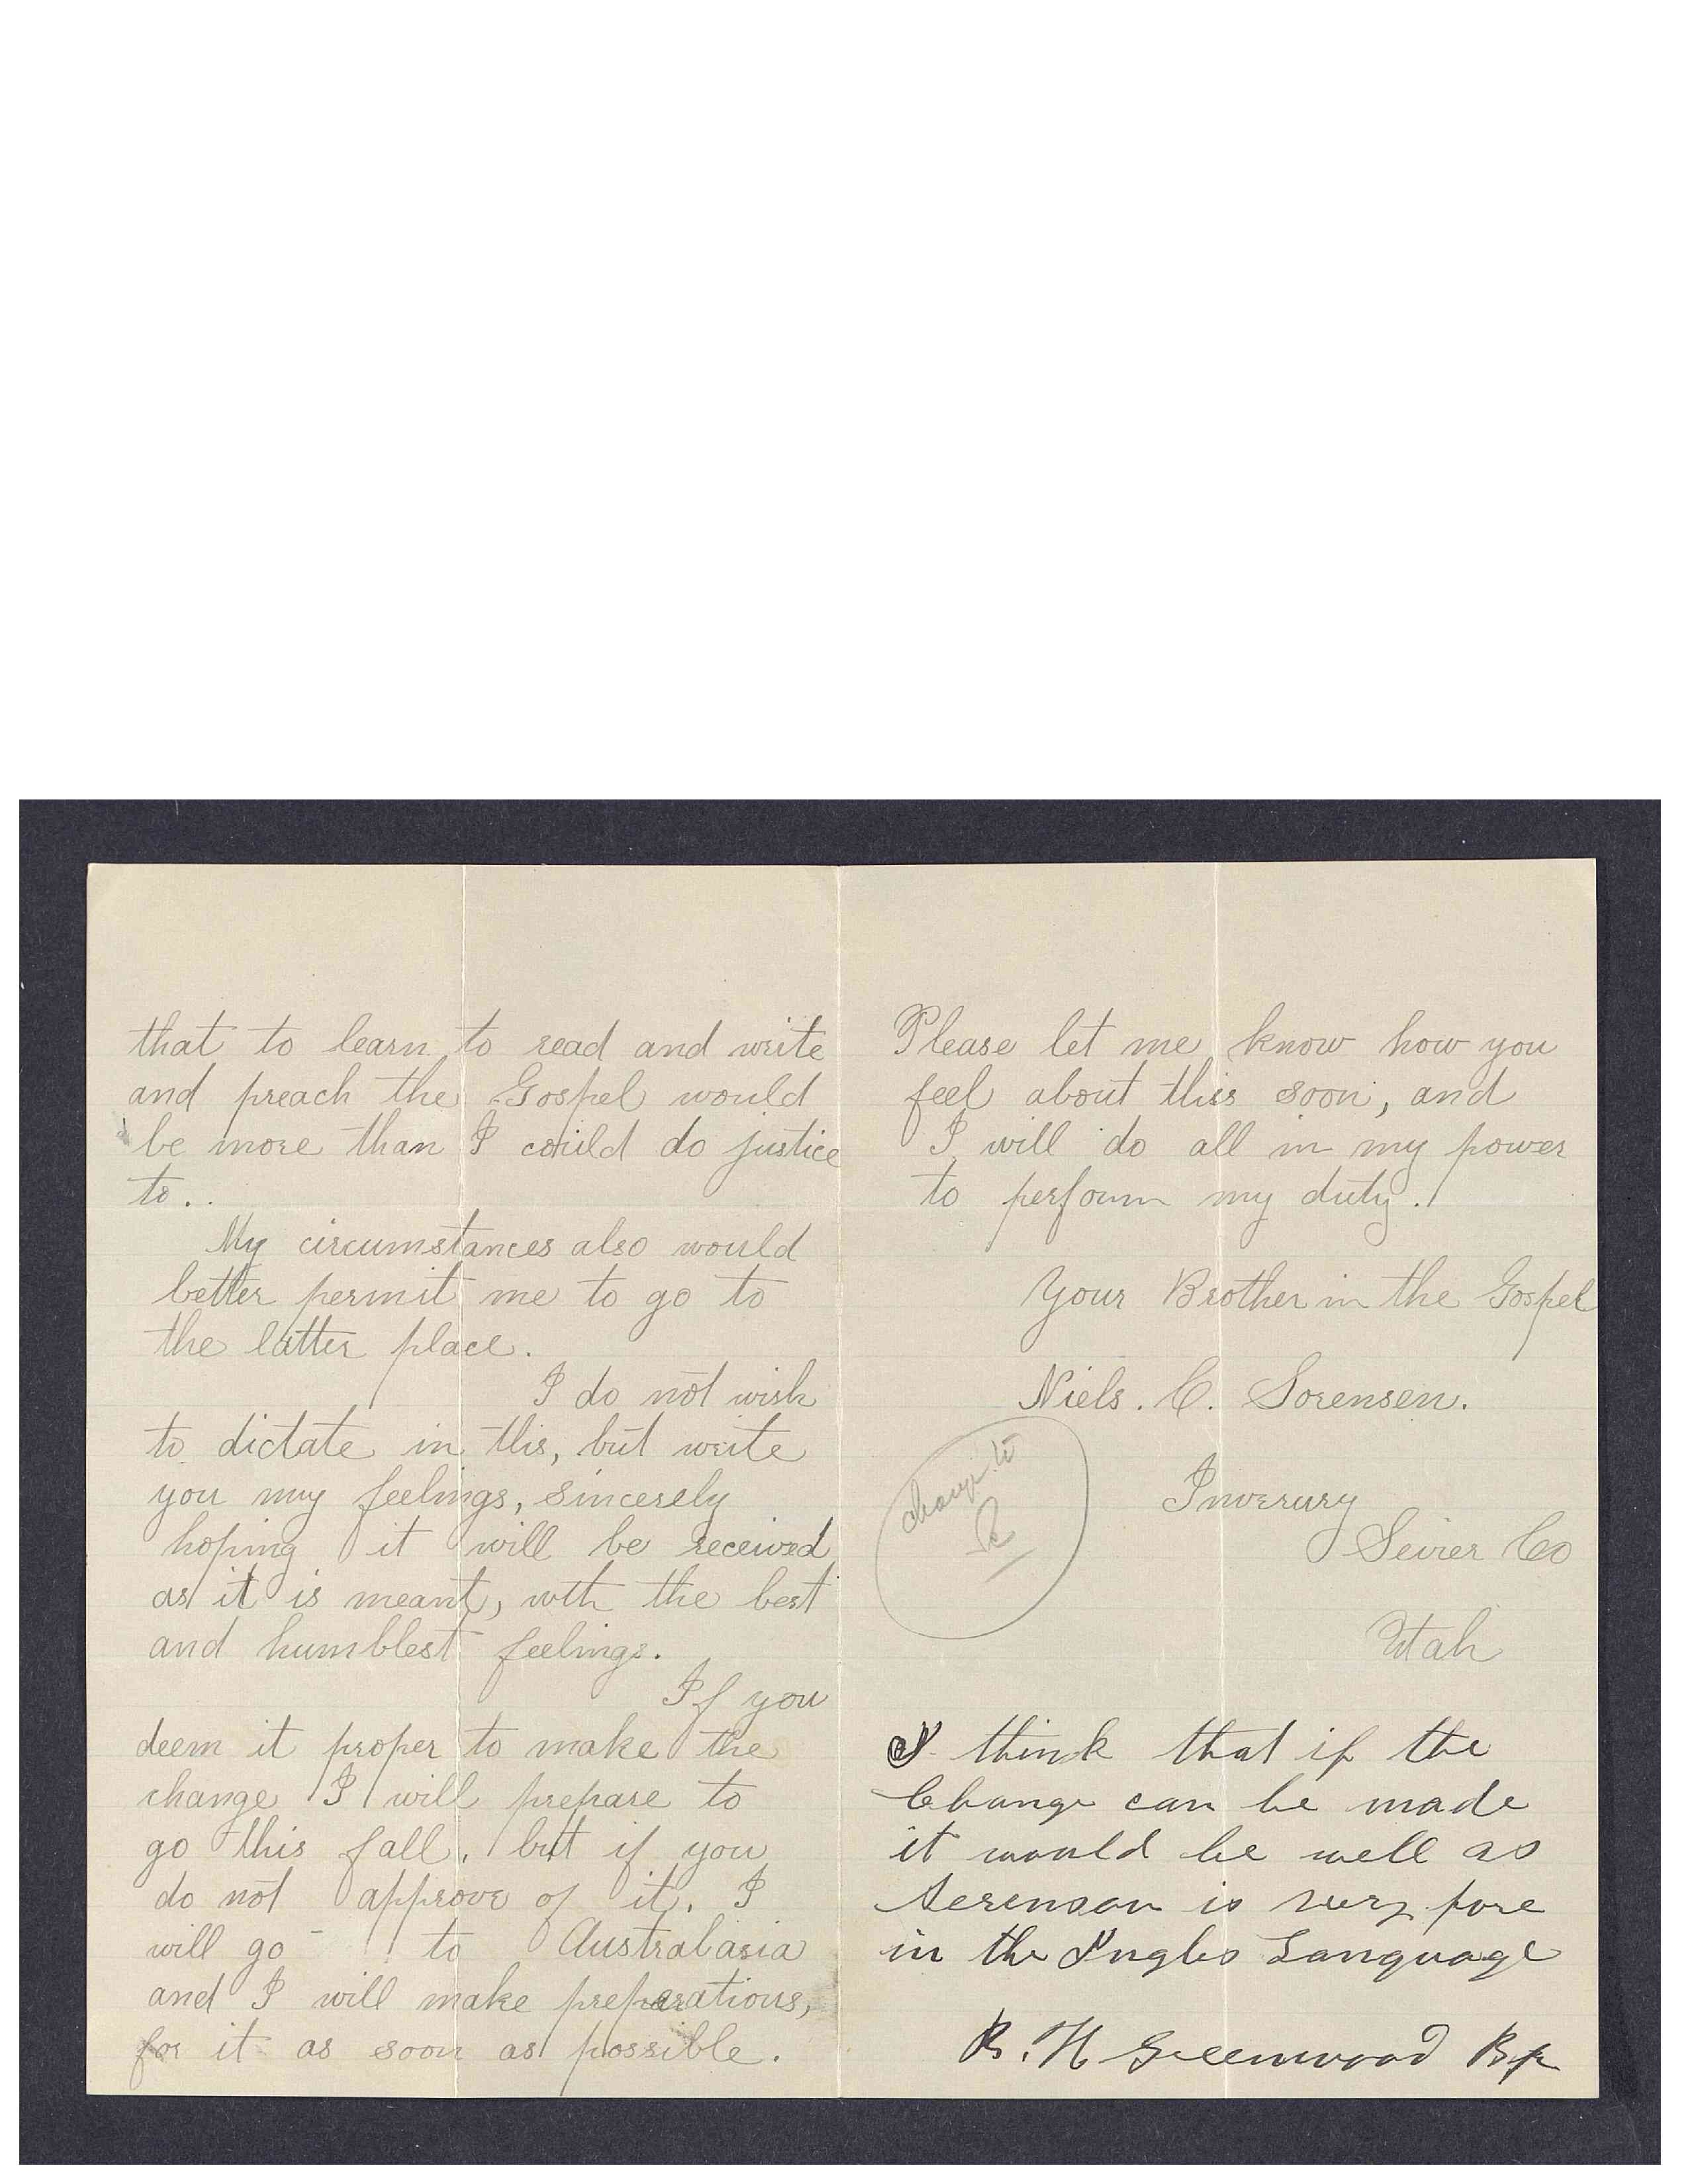 that to learn to read and write
and preach the Gospel would
be more than I could do justice
to..
My circumstances also would
better permit me to go to
the latter place.
I do not wish
to dictate in this, but write
you my feelings, sincerely
hoping it will be received
as it is meant, wth the best
and humblest feelings.
If you
deem it proper to make the
change I will prepare to
go this fall, but if you
do not approve of it. I
will go - to Australasia
and I will make preparations,
for it as soon as possible.
Please let me know how you
feel about this soon, and
I will do all in my power
to perform my duty.
Your Brother in the Gospel
Niels. C. Sorensen.
change to
Inverury
Sevier Co
Utah
I think that if the
Change can be made
it would be well as
Serenson is very pore
in the Inglis Language
B. H Greenwood Bp